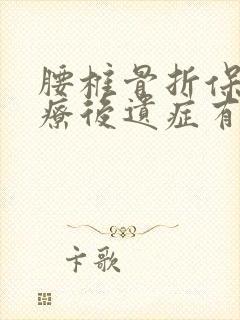 腰椎骨折保
療後遺症有
卞歌